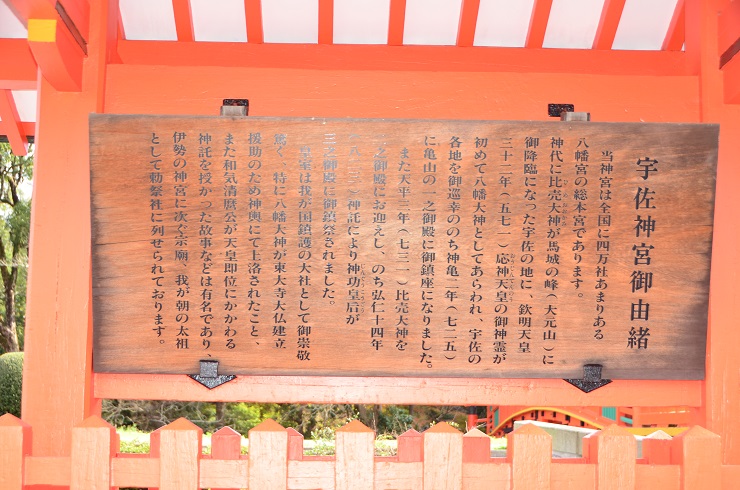 宇佐神宮御由緒
当神宮は全国に四万社あまりある
八幡宮の総本宮であります。
神代に比売大神が馬城の峰（大元山）に
御降臨になった宇佐の地に、欽明天皇
三十二年（五七一）応神天皇の御神霊が
初めて八幡大神としてあらわれ、宇佐の
各地を御巡幸ののち神亀二年（七二五）
に亀山の一之御殿に御鎮座になりました。
また天平三年（七三一）比売大神を
二之御殿にお迎えし、のち弘仁十四年
（八二三）神託により神功皇后が
三之御殿に御鎮祭されました。
皇室は我が国鎮護の大社として御崇敬
篤く、特に八幡大神が東大寺大仏建立
援助のため神輿にて上洛されたこと、
また和気清麿公が天皇即位にかかわる
神託を授かった故事などは有名であり
伊勢の神宮に次ぐ宗廟、我が朝の太祖
として勅祭社に列せられております。